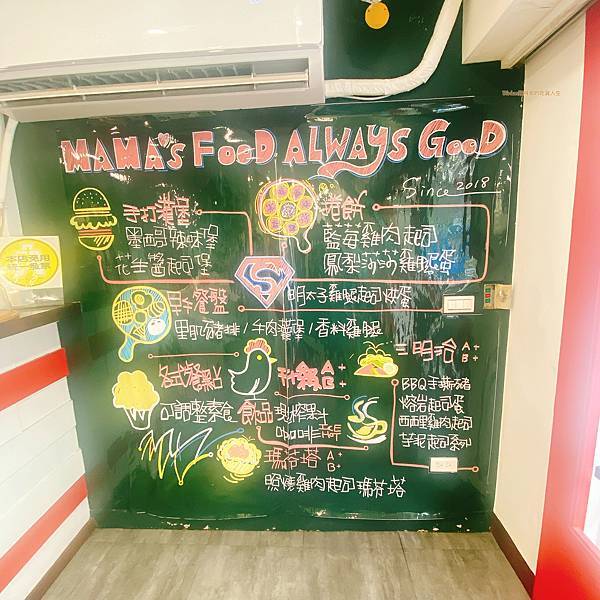 MAMA's FOOD ALWAYS GOOD
Since 2018
手打漢堡
墨西哥辣味堡
花生醬起司堡
捲餅
藍莓雞肉起司
鳳梨莎莎雞腿蛋
早午餐盤
明太子雞腿起司炊蛋
里肌豬排/牛肉漢堡/香料雞腿
各式餐點
可調整素食
飲品
現榨果汁
咖啡
三明治 A+ B+
BBQ手撕豬
熔岩起司蛋
西西里雞肉起司
芋泥起司系列
瑪芬塔 A+ B+
照燒雞肉起司瑪芬塔
本店免用
統一發票